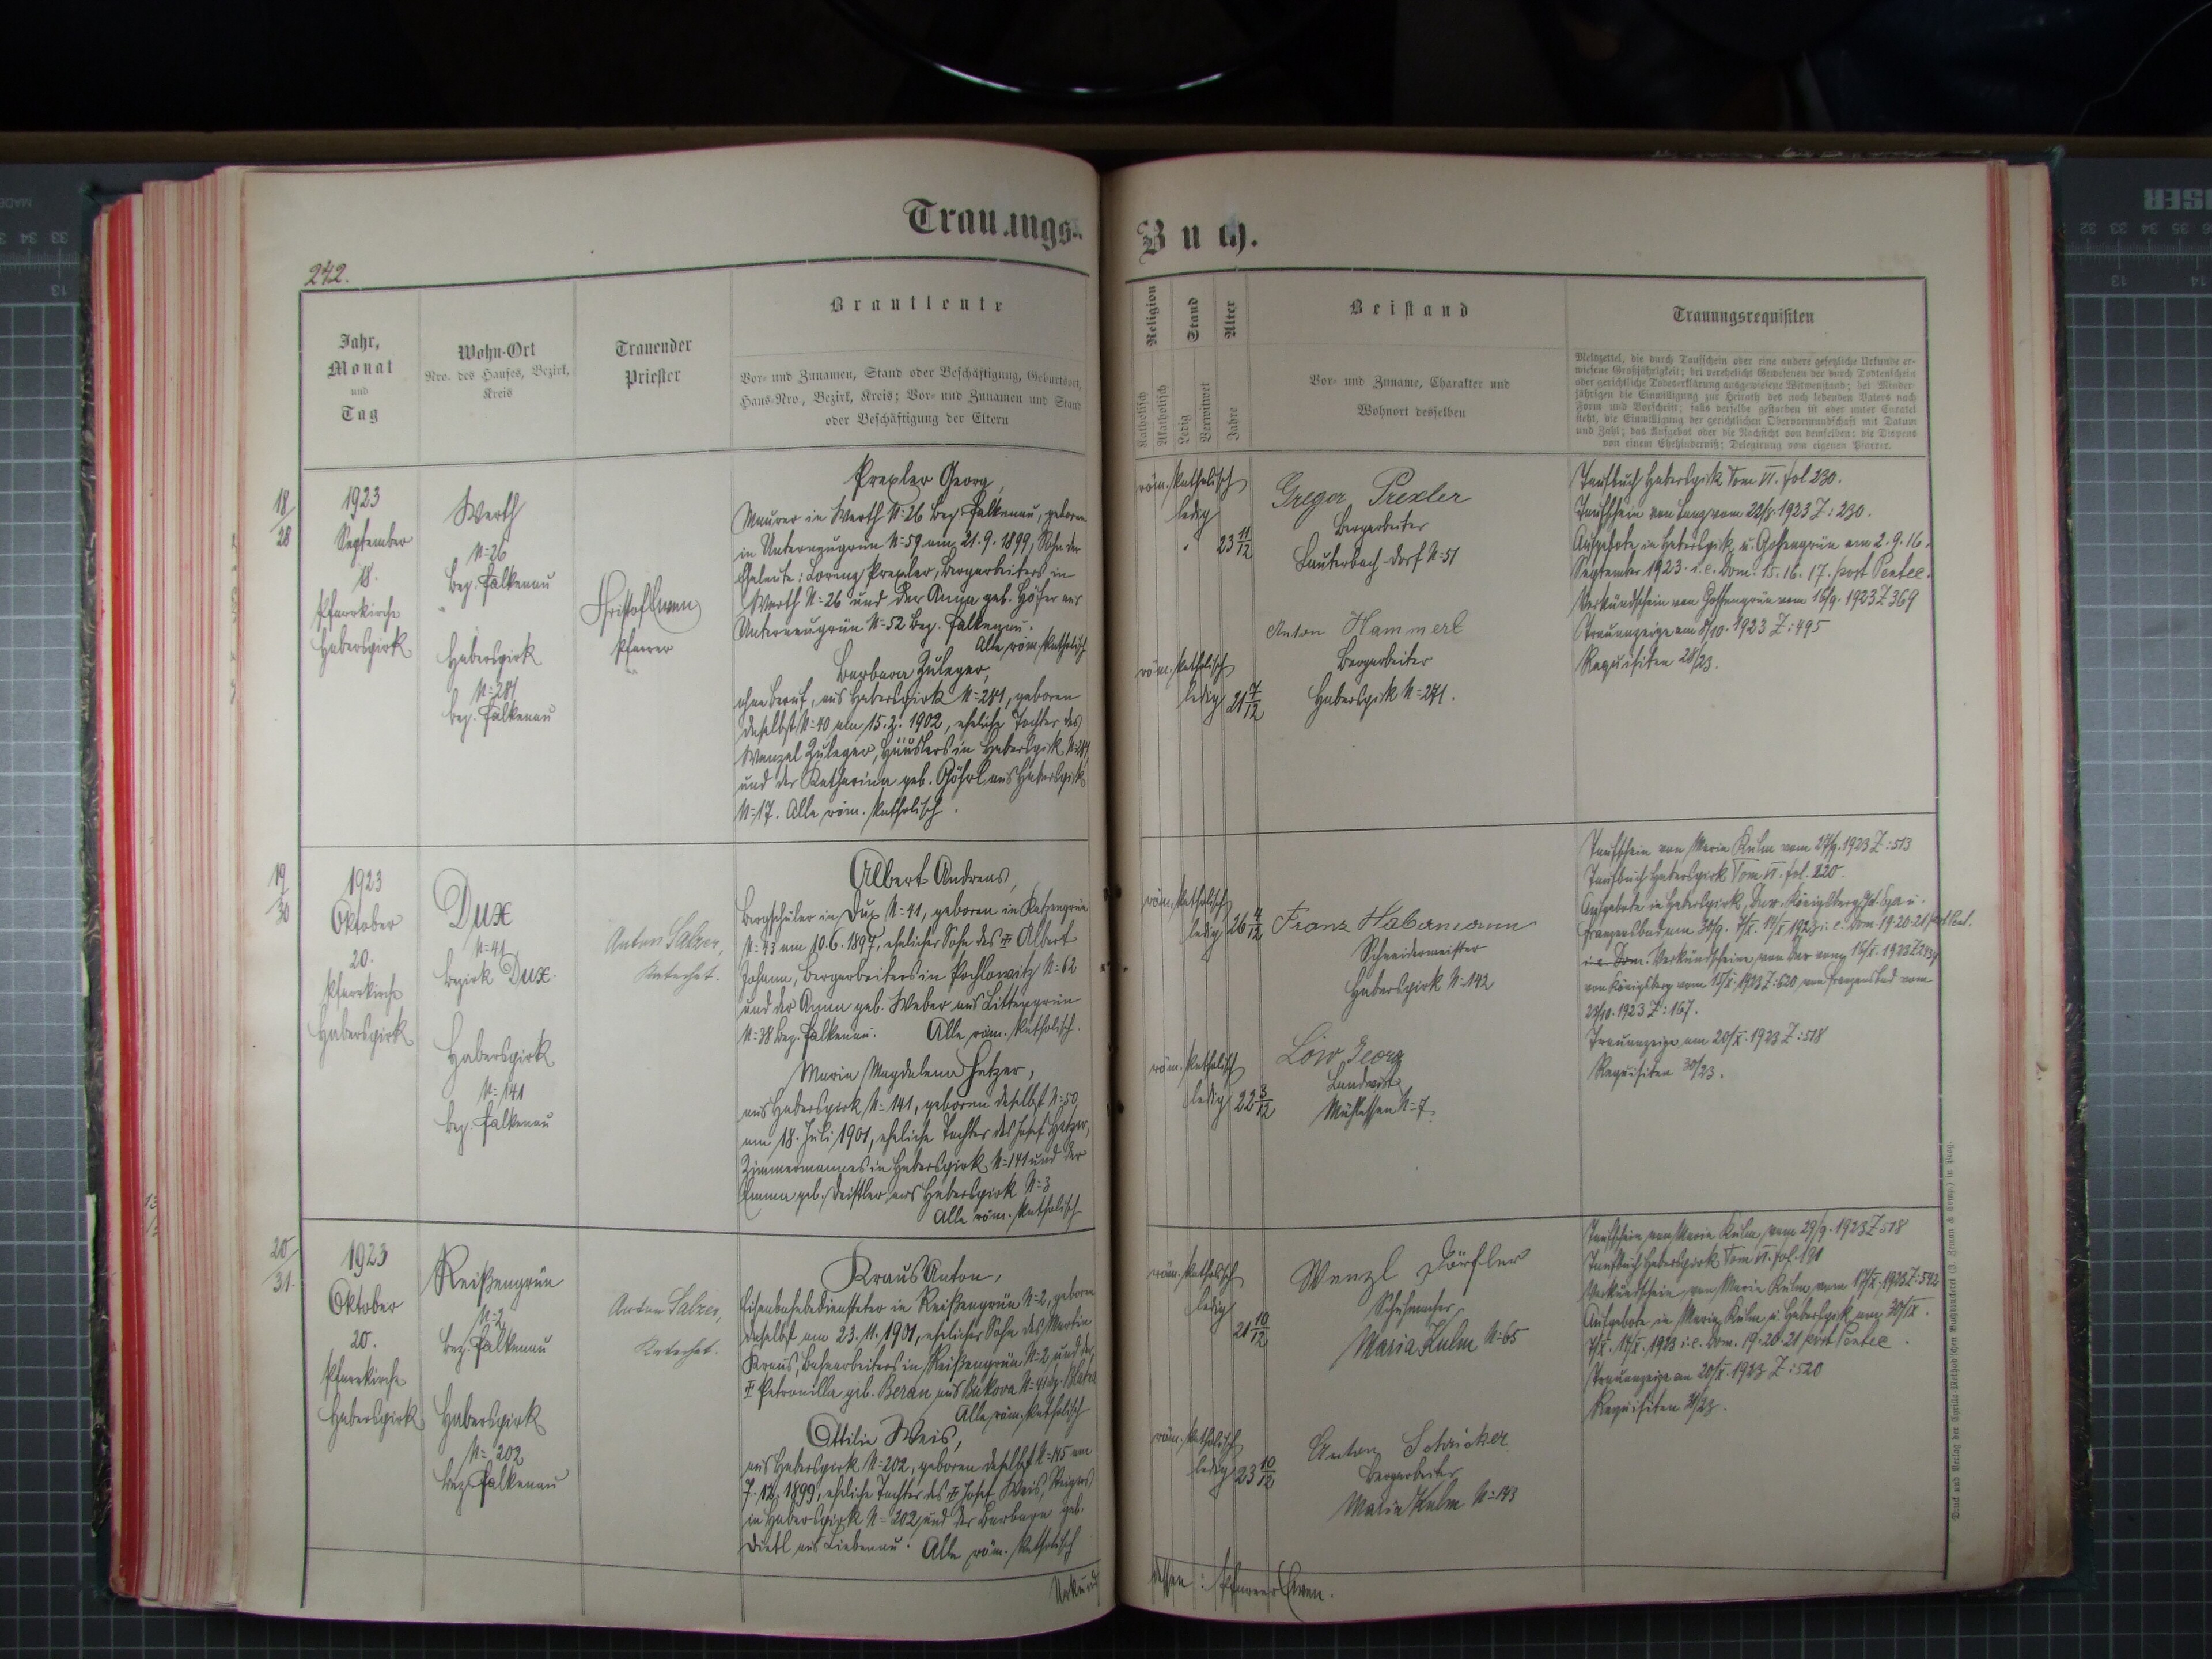 Trauungs-
Buch.
242.
Jahr,
Monat
und
Tag
Wohn-Ort
Nro. des Hauses, Bezirk,
Kreis
Trauender
Priester
Brautleute
Vor- und Zunamen, Stand oder Beschäftigung, Geburtsort,
Haus-Nro., Bezirk, Kreis; Vor- und Zunamen und Stand
oder Beschäftigung der Eltern
Religion
Katholisch
Akatholisch
Stand
Ledig
Verwitwet
Alter
Jahre
Beistand
Vor- und Zuname, Charakter und
Wohnort desselben
Trauungsrequisiten
Meldzettel, die durch Taufschein oder eine andere gesetzliche Urkunde er-
wiesene Großjährigkeit; bei verehelicht Gewesenen der durch Todtenschein
oder gerichtliche Todeserklärung ausgewiesene Witwenstand; bei Minder-
jährigen die Einwilligung zur Heirath des noch lebenden Vaters nach
Form und Vorschrift; falls derselbe gestorben ist oder unter Curatel
steht, die Einwilligung der gerichtlichen Obervormundschaft mit Datum
und Zahl; das Aufgebot oder die Nachsicht von demselben; die Dispens
von einem Ehehinderniß; Delegirung vom eigenen Pfarrer.
18
28
1923
September
18.
Pfarrkirche
Haberspirk
Werth
N=26
Bez. Falkenau
Haberspirk
N=281
bez. Falkenau
Pfarrer
Prexler Georg,
Maurer in Werth N=26 bez. Falkenau, geboren
in Unterneugrün N=59 am 21.9.1899, Sohn der
Eheleute: Lorenz Prexler, Bergarbeiters in
Werth N=26 und der Anna geb. Höfer aus
Unterneugrün N=52 bez. Falkenau.
Alle röm. katholisch
Barbara Zuleger,
ohne Beruf, aus Haberspirk N=281, geboren
daselbst N=40 am 15.2.1902, eheliche Tochter des
Wenzel Zuleger, Häuslers in Haberspirk N=281
und der Katharina geb. aus Haberspirk
N=17. Alle röm. katholisch.
röm. katholisch
ledig
23 11/12
röm. katholisch
ledig 21 7/12
Gregor Prexler
Bergarbeiter
Lauterbach-Dorf N=51
Anton Hammerl
Bergarbeiter
Haberspirk N=271.
Taufbuch Haberspirk Tom VI. fol 230.
Taufschein von Lanz vom 1923 Z: 230.
Aufgebote in Haberspirk u. Gossengrün am 2. 9. 16.
September 1923 i.e. Dom. 15. 16. 17. post Pentec.
Verkündschein von Gossengrün vom 16/9. 1923 Z 369
Trauanzeige am 8/10. 1923 Z: 495
Requisiten 28/23.
19
30
1923
Oktober
20.
Pfarrkirche
Haberspirk
Dux
N=41
Bezirk Dux.
Haberspirk
N=141
bez. Falkenau
Anton Salzer,
Katechet.
Albert Andreas,
Bergschüler in Dux N=41, geboren in Katzengrün
N=43 am 10.6.1897, ehelicher Sohn des ✝ Albert
Johann, Bergarbeiters in Pochlowitz N=62
und der Anna geb. Weber aus Littengrün
N=38 bez. Falkenau. Alle röm. katholisch.
Maria Magdalena Hetzer,
aus Haberspirk N=141, geboren daselbst N=50
am 18. Juli 1901, eheliche Tochter des Josef Hetzer,
Zimmermannes in Haberspirk N=141 und der
Emma geb. Deistler aus Haberspirk N=3
Alle röm. katholisch
röm. katholisch
ledig 26 4/12
röm. katholisch
ledig 22 3/12
Franz Habermann
Schneidermeister
Haberspirk N=142
Löw Georg
Landwirt
Mühlessen N=7
Taufschein von Maria Kulm vom 27/9. 1923 Z: 513
Taufbuch Haberspirk Tom VI. fol. 220.
Aufgebote in Haberspirk, Dux, Königsberg u.
Franzensbad am 30/9. 7/X. 14/X 1923 i.e. Dom. 19. 20. 21 post Pent.
i.e. Dom. Verkündscheine von Dux vom 16/X. 1923
von Königsberg vom 15/X. 1923 Z: 620 von Franzensbad vom
1923 Z: 167.
Trauanzeige am 20/X. 1923 Z: 518
Requisiten 30/23.
20
31.
1923
Oktober
20.
Pfarrkirche
Haberspirk
Reißengrün
N=2
bez. Falkenau
Haberspirk
N=202
bez. Falkenau
Anton Salzer,
Katechet.
Kraus Anton,
Eisenbahnbediensteter in Reißengrün N=2, geboren
daselbst am 23.11.1901, ehelicher Sohn des Martin
Kraus, Bahnarbeiters in Reißengrün N=2 und der
✝ Petronilla geb. Beran aus Bukova N=41 bz. Blatna
Alle röm. katholisch
Ottilie Weis,
aus Haberspirk N=202, geboren daselbst N=145 am
7.12.1899, eheliche Tochter des ✝ Josef Weis, Steigers
in Haberspirk N=202 und der Barbara geb.
Dietl aus Liebenau. Alle röm. katholisch
röm. katholisch
ledig
21 10/12
röm. katholisch
ledig 23 10/12
Wenzl Dörfler
Schuhmacher
Maria Kulm N=65
Anton Schricker
Bergarbeiter
Maria Kulm N=143
Taufschein von Maria Kulm vom 29/9. 1923 Z 518
Taufbuch Haberspirk Tom VI. fol. 191
Verkündschein von Maria Kulm vom 17/X. 1923 Z: 542
Aufgebote in Maria Kulm u. Haberspirk am 30/IX.
7/X. 14/X. 1923 i.e. Dom. 19. 20. 21 post Pentec.
Trauanzeige am 20/X. 1923 Z: 520
Requisiten 31/23.
Urkund
dessen: Pfarrer
Druck und Verlag der Cyrillo-Method'schen Buchdruckerei (J. Zeman & Comp.) in Prag.